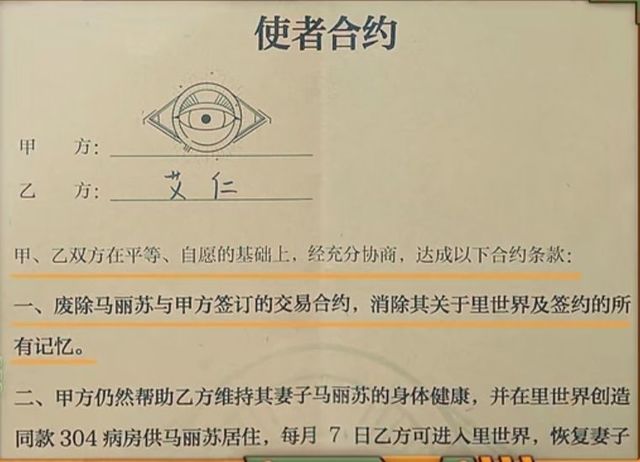 使者合约
甲 方:
乙 方: 艾仁
甲、乙双方在平等、自愿的基础上，经充分协商，达成以下合约条款:
一、废除马丽苏与甲方签订的交易合约，消除其关于里世界及签约的所
有记忆。
二、甲方仍然帮助乙方维持其妻子马丽苏的身体健康，并在里世界创造
同款 304 病房供马丽苏居住，每月 7 日乙方可进入里世界，恢复妻子